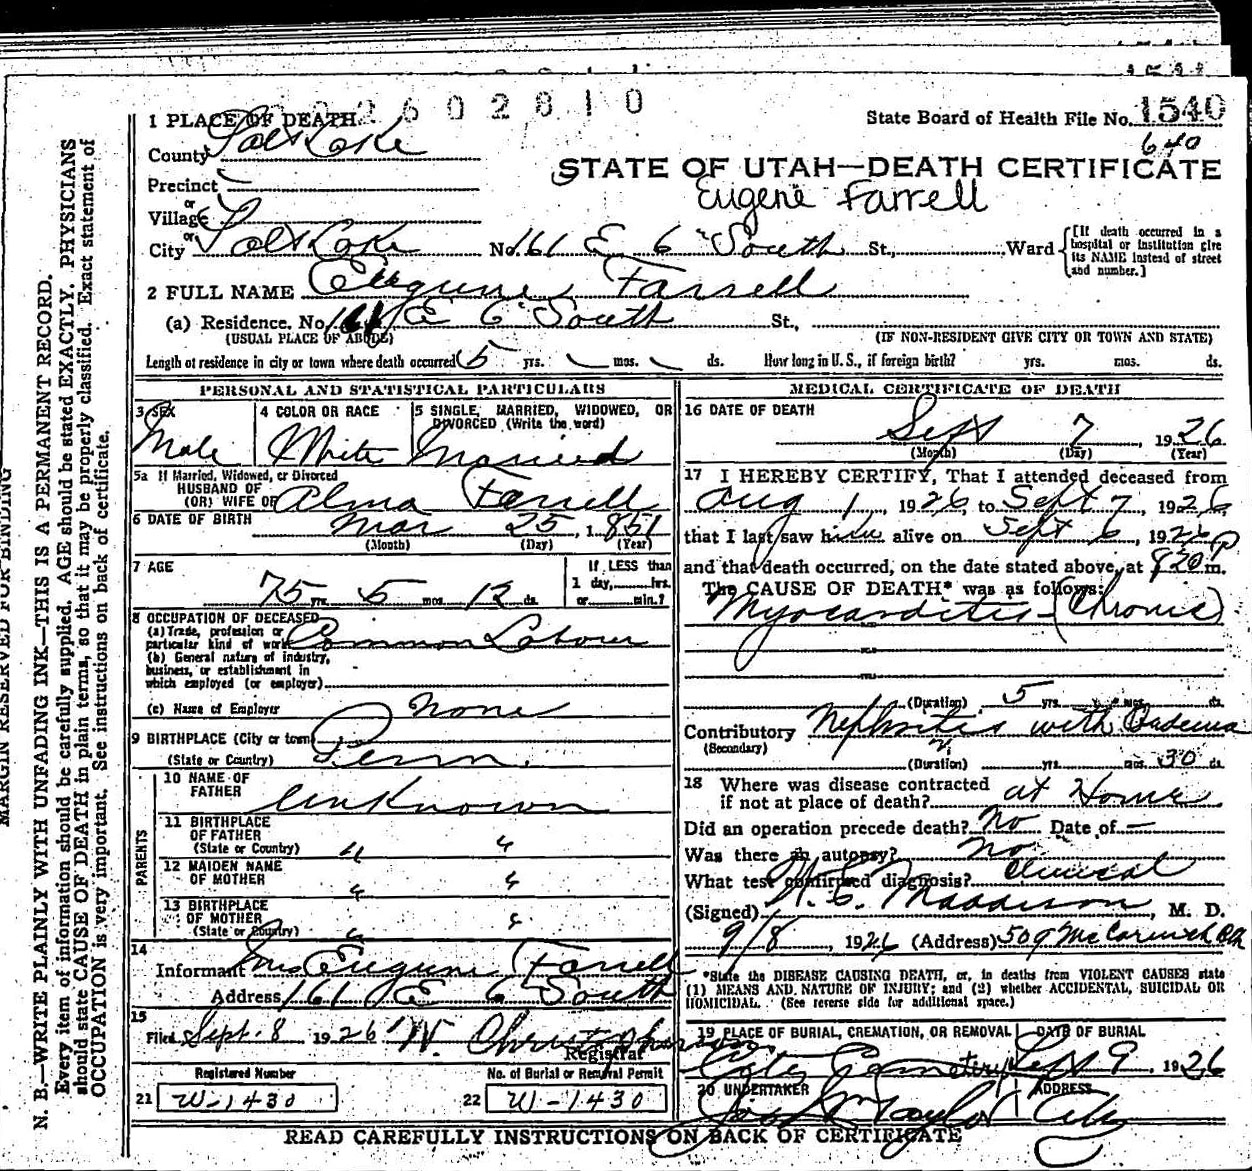 2602810
1540
State Board of Health File No. 1540
640
1 PLACE OF DEATH
County Salt Lake
STATE OF UTAH—DEATH CERTIFICATE
Precinct
Eugene Farrell
or
Village
or
City Salt Lake No. 161 E 6" South St., Ward
[If death occurred in a hospital or institution give its NAME instead of street and number.]
2 FULL NAME Eugene Farrell
(a) Residence. No. 161 E 6 South St.,
(USUAL PLACE OF ABODE) (IF NON-RESIDENT GIVE CITY OR TOWN AND STATE)
Length of residence in city or town where death occurred 5 yrs. mos. ds. How long in U.S., if foreign birth? yrs. mos. ds.
PERSONAL AND STATISTICAL PARTICULARS
3 SEX 4 COLOR OR RACE 5 SINGLE, MARRIED, WIDOWED, OR DIVORCED (Write the word)
Male White Married
5a If Married, Widowed, or Divorced
HUSBAND OF
(OR) WIFE OF Alma Farrell
6 DATE OF BIRTH Mar 25, 1851
(Month) (Day) (Year)
7 AGE If LESS than
1 day, hrs.
75 yrs. 5 mos. 12 ds. or min.?
8 OCCUPATION OF DECEASED
(a) Trade, profession or
particular kind of work Common Labour
(b) General nature of industry,
business, or establishment in
which employed (or employer)
(c) Name of Employer None
9 BIRTHPLACE (City or town)
(State or Country) Penn.
PARENTS
10 NAME OF
FATHER Unknown
11 BIRTHPLACE
OF FATHER
(State or Country) " "
12 MAIDEN NAME
OF MOTHER " "
13 BIRTHPLACE
OF MOTHER
(State or Country) " "
14
Informant Mrs Eugene Farrell
Address 161 E 6 South
15
Filed Sept. 8 1926 W. Christopherson
Registrar
Registered Number No. of Burial or Removal Permit
21 W-1430 22 W-1430
MEDICAL CERTIFICATE OF DEATH
16 DATE OF DEATH
Sept 7, 1926
(Month) (Day) (Year)
17 I HEREBY CERTIFY, That I attended deceased from
Aug 1, 1926, to Sept 7, 1926,
that I last saw him alive on Sept 6, 1926
and that death occurred, on the date stated above, at 820 p m.
The CAUSE OF DEATH* was as follows:
Myocarditis—(Chronic)
(Duration) 5 yrs. mos. ds.
Contributory Nephritis with Oedema
(Secondary)
(Duration) yrs. mos. 30 ds.
18 Where was disease contracted
if not at place of death? at Home
Did an operation precede death? No Date of —
Was there an autopsy? No
What test confirmed diagnosis? Clinical
(Signed) W. E. Maddison, M. D.
9/8, 1926 (Address) 509 McCormick
*State the DISEASE CAUSING DEATH, or, in deaths from VIOLENT CAUSES state
(1) MEANS AND NATURE OF INJURY; and (2) whether ACCIDENTAL, SUICIDAL OR
HOMICIDAL. (See reverse side for additional space.)
19 PLACE OF BURIAL, CREMATION, OR REMOVAL DATE OF BURIAL
City Cemetery Sept 9, 1926
20 UNDERTAKER ADDRESS
Taylor City
READ CAREFULLY INSTRUCTIONS ON BACK OF CERTIFICATE
MARGIN RESERVED FOR BINDING
N. B.—WRITE PLAINLY WITH UNFADING INK—THIS IS A PERMANENT RECORD.
Every item of information should be carefully supplied. AGE should be stated EXACTLY. PHYSICIANS
should state CAUSE OF DEATH in plain terms, so that it may be properly classified. Exact statement of
OCCUPATION is very important. See instructions on back of certificate.